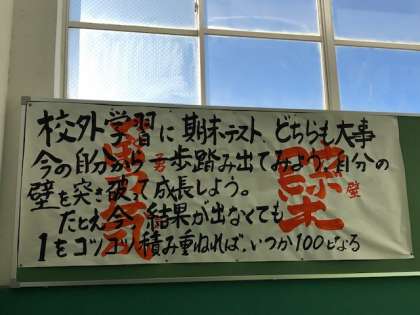 校外学習に期末テスト、どちらも大事
今の自分から一歩踏み出てみよう、自分の
壁を突き破って成長しよう。
たとえ今、結果が出なくても
1をコツコツ積み重ねれば、いつか100となる
勇
壁